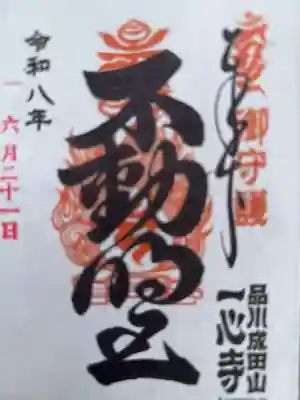 御守護
品川成田山
一心寺
不動明王
令和八年
六月二十一日